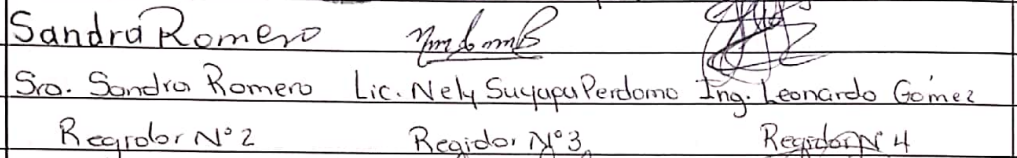 Sandra Romero
Sra. Sandra Romero Lic. Nely Suyapa Perdomo Ing. Leonardo Gómez
Regidor N°2 Regidor N°3 Regidor N°4